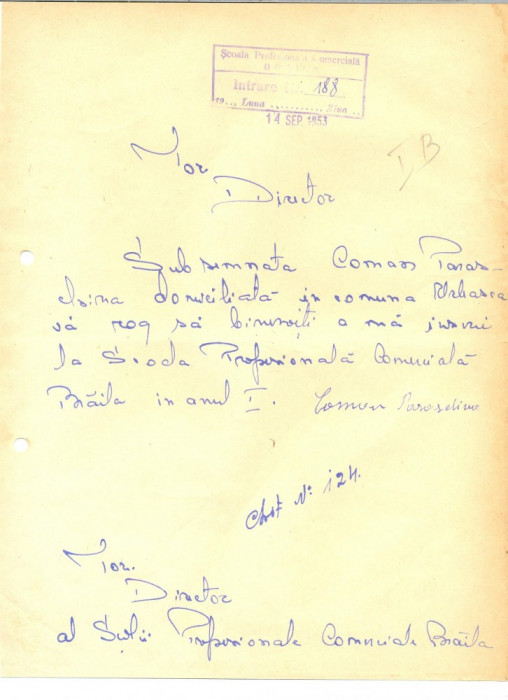 Școala Profesională Comercială
Intrare 188
19 Luna Ziua
14 SEP. 1953
I B
Tov.
Director
Subsemnata Coman Paras-
chiva domiciliată în comuna
vă rog să binevoiți a mă înscrie
la Școala Profesională Comercială
Brăila in anul I. Coman Paraschiva
Nº 124.
Tov.
Director
al Școlii Profesionale Comerciale Brăila